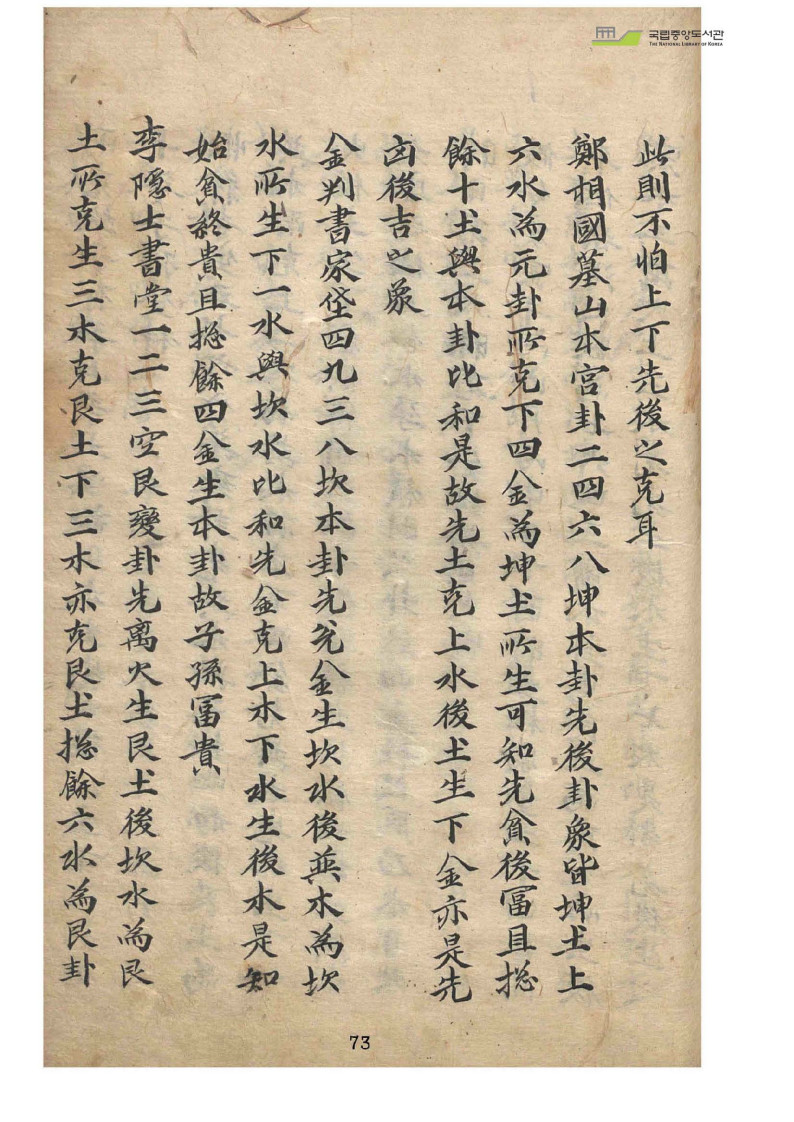 국립중앙도서관
THE NATIONAL LIBRARY OF KOREA
此則不怕上下先後之克耳
鄭相國墓山本宮卦二四六八坤本卦先後卦象皆坤土上
六水為元卦所克下四金為坤土所生可知先貧後冨且捴
餘十土與本卦比和是故先土克上水後土生下金亦是先
凶後吉之象
金判書家垈四九三八坎本卦先兊金生坎水後㢲木為坎
水所生下一水與坎水比和先金克上木下水生後木是知
始貧終貴且捴餘四金生本卦故子孫冨貴
李隱士書堂一二三空艮變卦先离火生艮土後坎水為艮
土所克生三木克艮土下三木亦克艮土捴餘六水為艮卦
73